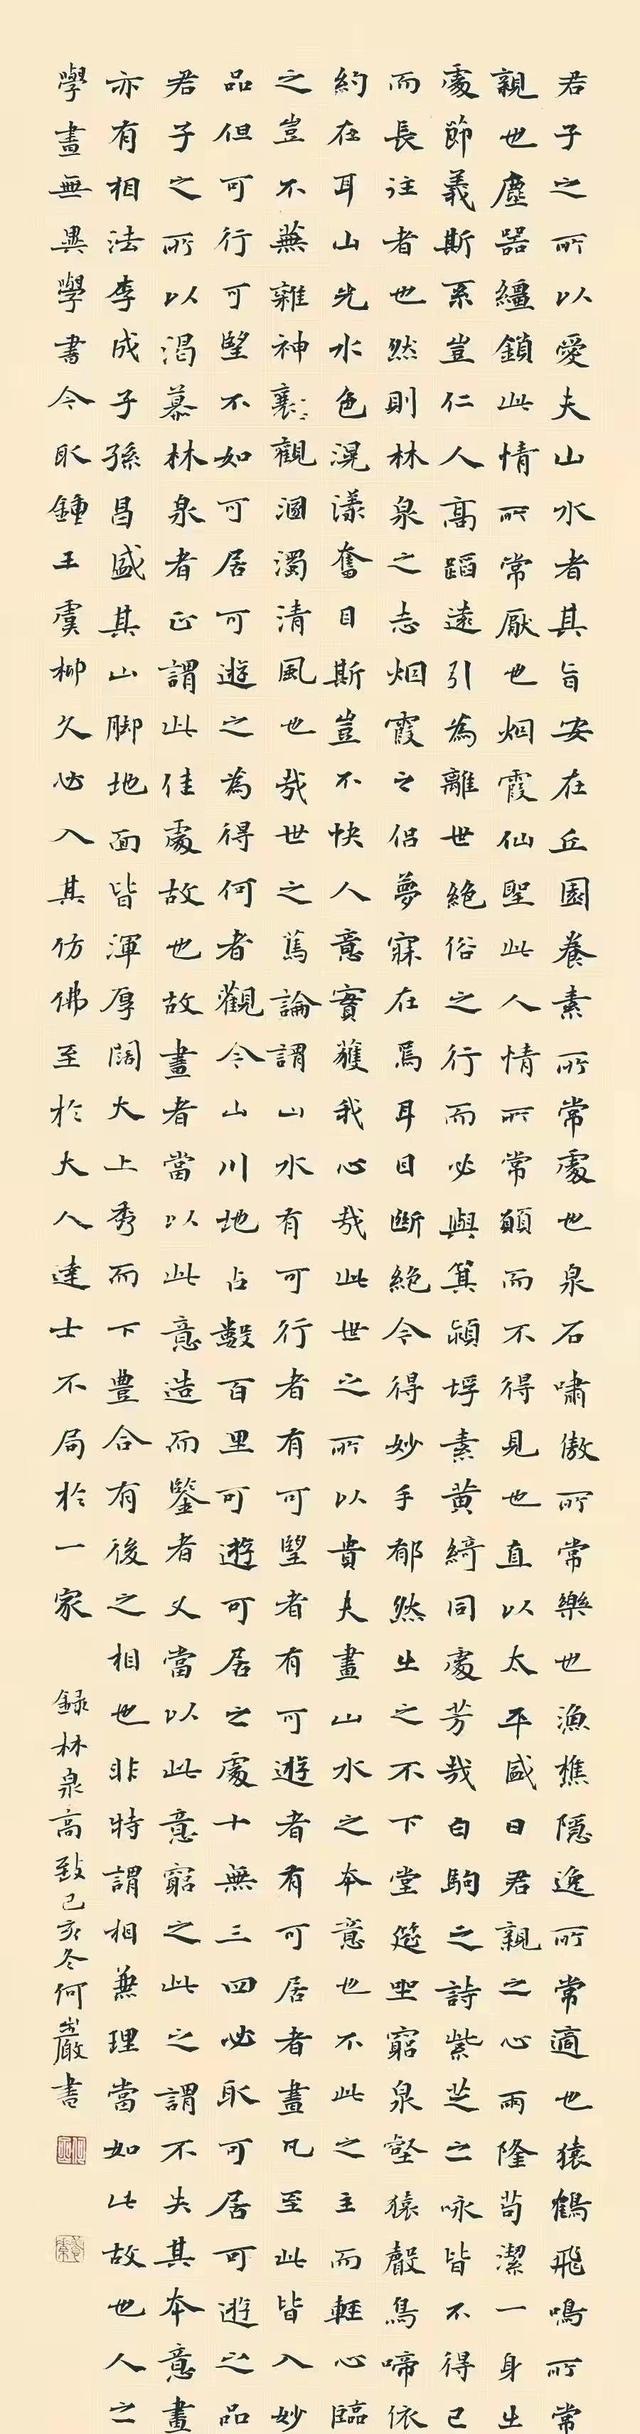 君子之所以愛夫山水者其旨安在丘園養素所常處也泉石嘯傲所常樂也漁樵隱逸所常適也猿鶴飛鳴所常
親也塵囂繮鎖此情所常厭也烟霞仙聖此人情所常願而不得見也直以太平盛日君親之心兩隆苟潔一身出
處節義斯系豈仁人高蹈遠引為離世絕俗之行而必與箕潁埒素黃綺同處芳哉白駒之詩紫芝之咏皆不得已
而長往者也然則林泉之志烟霞之侶夢寐在焉耳目斷絕今得妙手郁然出之不下堂筵坐窮泉壑猿聲鳥啼依
約在耳山光水色滉漾奪目斯豈不快人意實獲我心哉此世之所以貴夫畫山水之本意也不此之主而輕心臨
之豈不蕪雜神觀溷濁清風也哉世之篤論謂山水有可行者有可望者有可遊者有可居者畫凡至此皆入妙
品但可行可望不如可居可遊之為得何者觀今山川地占數百里可遊可居之處十無三四必取可居可遊之品
君子之所以渴慕林泉者正謂此佳處故也故畫者當以此意造而鑒者又當以此意窮之此之謂不失其本意畫
亦有相法李成子孫昌盛其山脚地面皆渾厚闊大上秀而下豐合有後之相也非特謂相兼理當如此故也人之
學畫無異學書今取鍾王虞柳久必入其仿佛至於大人達士不局於一家
錄林泉高致己亥冬何巖書